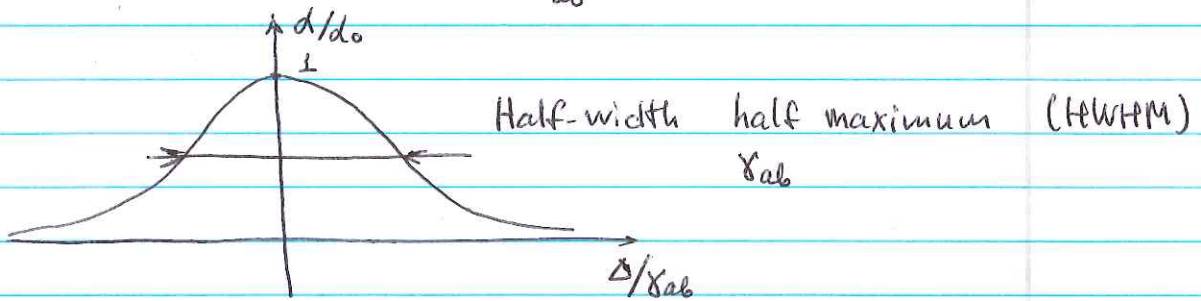 α/α₀
1
Half-width half maximum (HWHM)
γab
Δ/γab